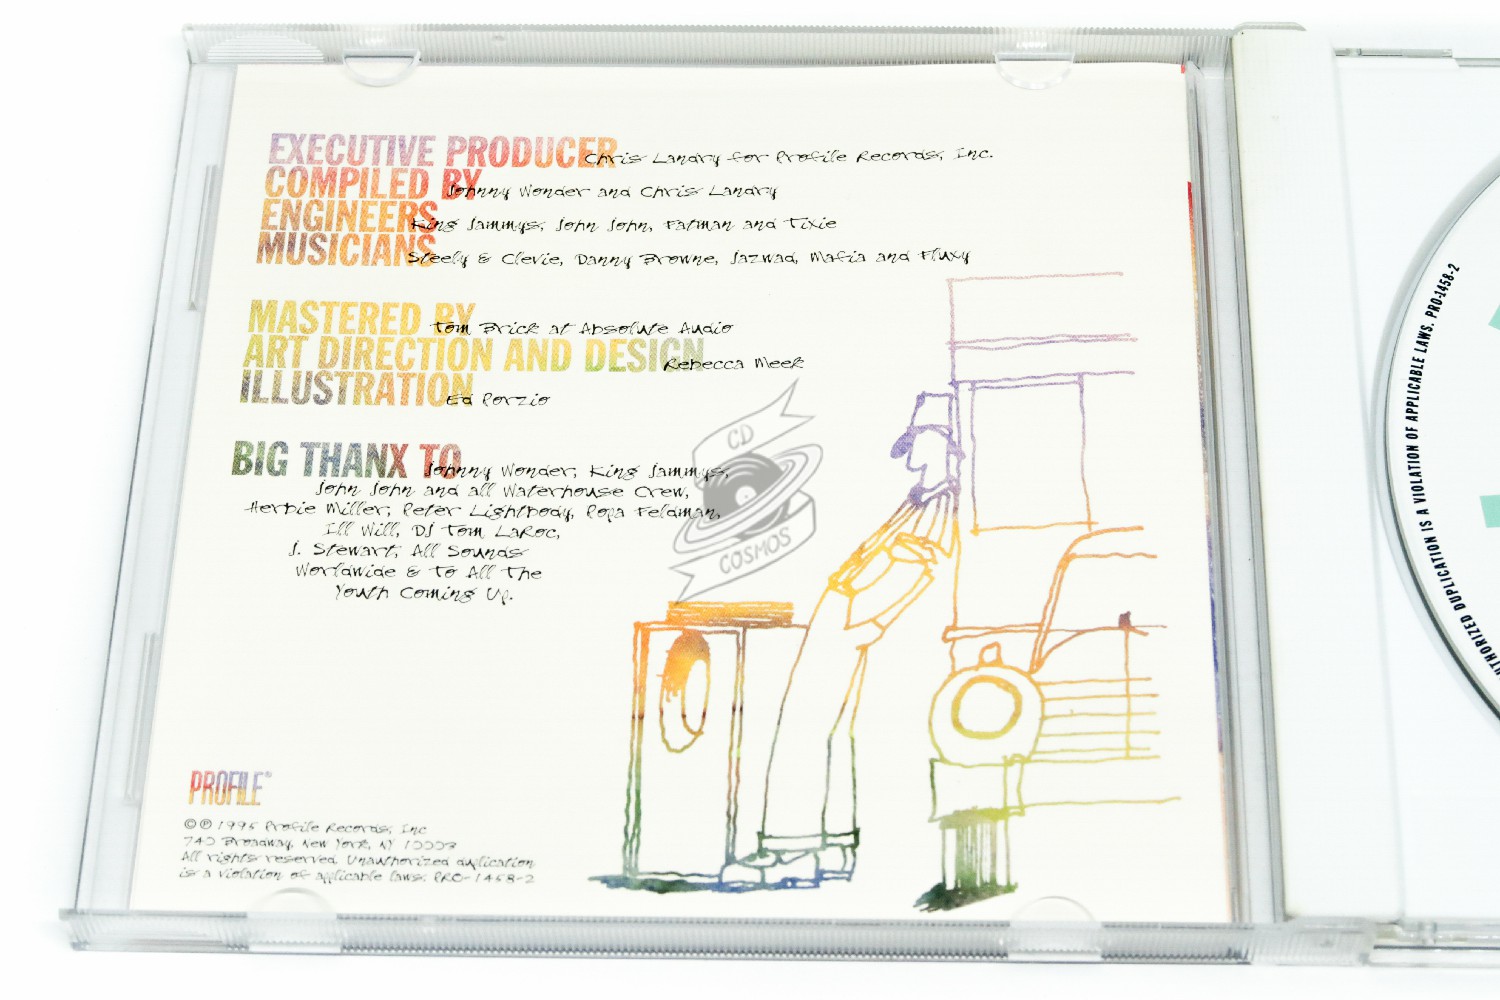 EXECUTIVE PRODUCER Chris Landry for Profile Records, Inc.
COMPILED BY Johnny Wonder and Chris Landry
ENGINEERS King Jammys, John John, Fatman and Tixie
MUSICIANS Steely & Clevie, Danny Browne, Jazwad, Mafia and Fluxy
MASTERED BY Tom Brick at Absolute Audio
ART DIRECTION AND DESIGN Rebecca Meek
ILLUSTRATION Ed Porzio
BIG THANX TO Johnny Wonder, King Jammys,
John John and all Waterhouse Crew,
Herbie Miller, Peter Lightbody, Popa Feldman,
Ill Will, DJ Tom LaRoc,
J. Stewart, All Sounds
Worldwide & To All The
Youth Coming Up.
CD
COSMOS
PROFILE®
©℗ 1995 Profile Records, Inc
740 Broadway, New York, NY 10003
All rights reserved. Unauthorized duplication
is a violation of applicable laws. PRO-1458-2
AUTHORIZED DUPLICATION IS A VIOLATION OF APPLICABLE LAWS. PRO-1458-2